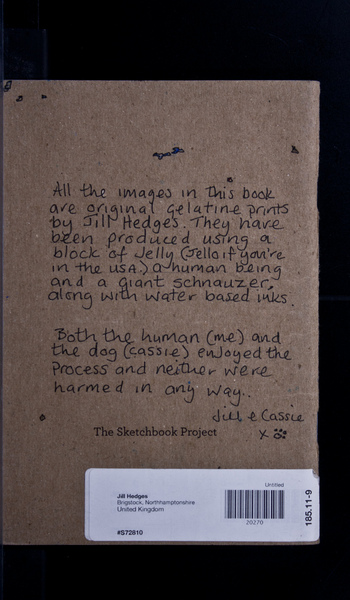 All the images in This book
are original gelatine prints
by Jill Hedges. They have
been produced using a
block of Jelly (Jello if you're
in the USA.) a human being
and a giant schnauzer.
along with water based inks.
Both the human (me) and
the dog (Cassie) enjoyed the
Process and neither were
harmed in any way..
Jill & Cassie
x
The Sketchbook Project
Untitled
Jill Hedges
Brigstock, Northhamptonshire
United Kingdom
20270
#S72810
185.11-9